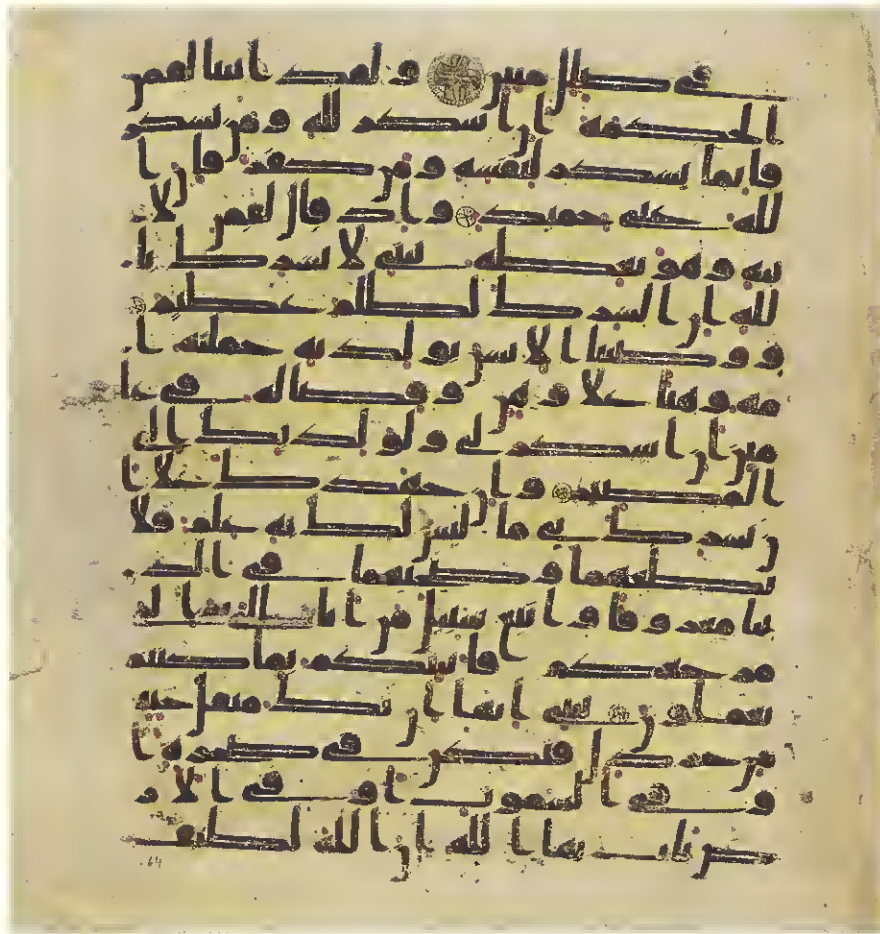 في ضلل مبين ولقد اتينا لقمن
الحكمة ان اشكر لله ومن يشكر
فانما يشكر لنفسه ومن كفر فان ا
لله غني حميد واذ قال لقمن لا
بنه وهو يعظه يبني لا تشرك با
لله ان الشرك لظلم عظيم
ووصينا الانسن بولديه حملته ا
مه وهنا علا وهن وفصاله في عا
مين ان اشكر لي ولولديك الي
المصير وان جهدك علا ا
ن تشرك بي ما ليس لك به علم فلا
تطعهما وصحبهما في الد
نيا معروفا واتبع سبيل من اناب الي ثم الي
مرجعكم فانبئكم بما كنتم
تعملون يبني انها ان تك مثقل حبة
من خردل فتكن في صخرة ا
و في السموت او في الار
ض يات بها الله ان الله لطيف
64